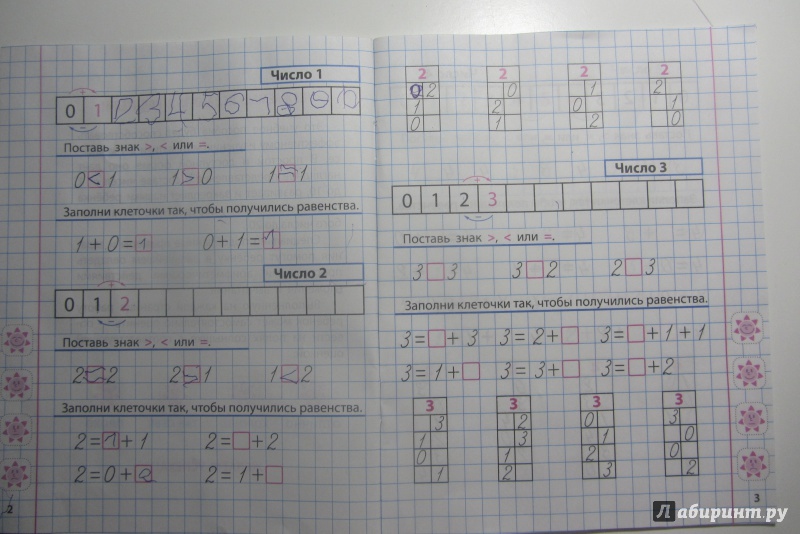 Число 1
0 1 2 3 4 5 6 7 8 9 10
Поставь знак >, < или =.
0 < 1 1 > 0 1 = 1
Заполни клеточки так, чтобы получились равенства.
1 + 0 = 1 0 + 1 = 1
Число 2
0 1 2
Поставь знак >, < или =.
2 = 2 2 > 1 1 < 2
Заполни клеточки так, чтобы получились равенства.
2 = 1 + 1 2 = □ + 2
2 = 0 + 2 2 = 1 + □
2
2 2 2 2
0 2 0 1 2
1 2 0 1
0 1 2 0
Число 3
0 1 2 3
Поставь знак >, < или =.
3 □ 3 3 □ 2 2 □ 3
Заполни клеточки так, чтобы получились равенства.
3 = □ + 3 3 = 2 + □ 3 = □ + 1 + 1
3 = 1 + □ 3 = 3 + □ 3 = □ + 2
3 3 3 3
3 2 0 3
1 3 1 0
0 1 2
1 2 3 2
3
Лабиринт.ру